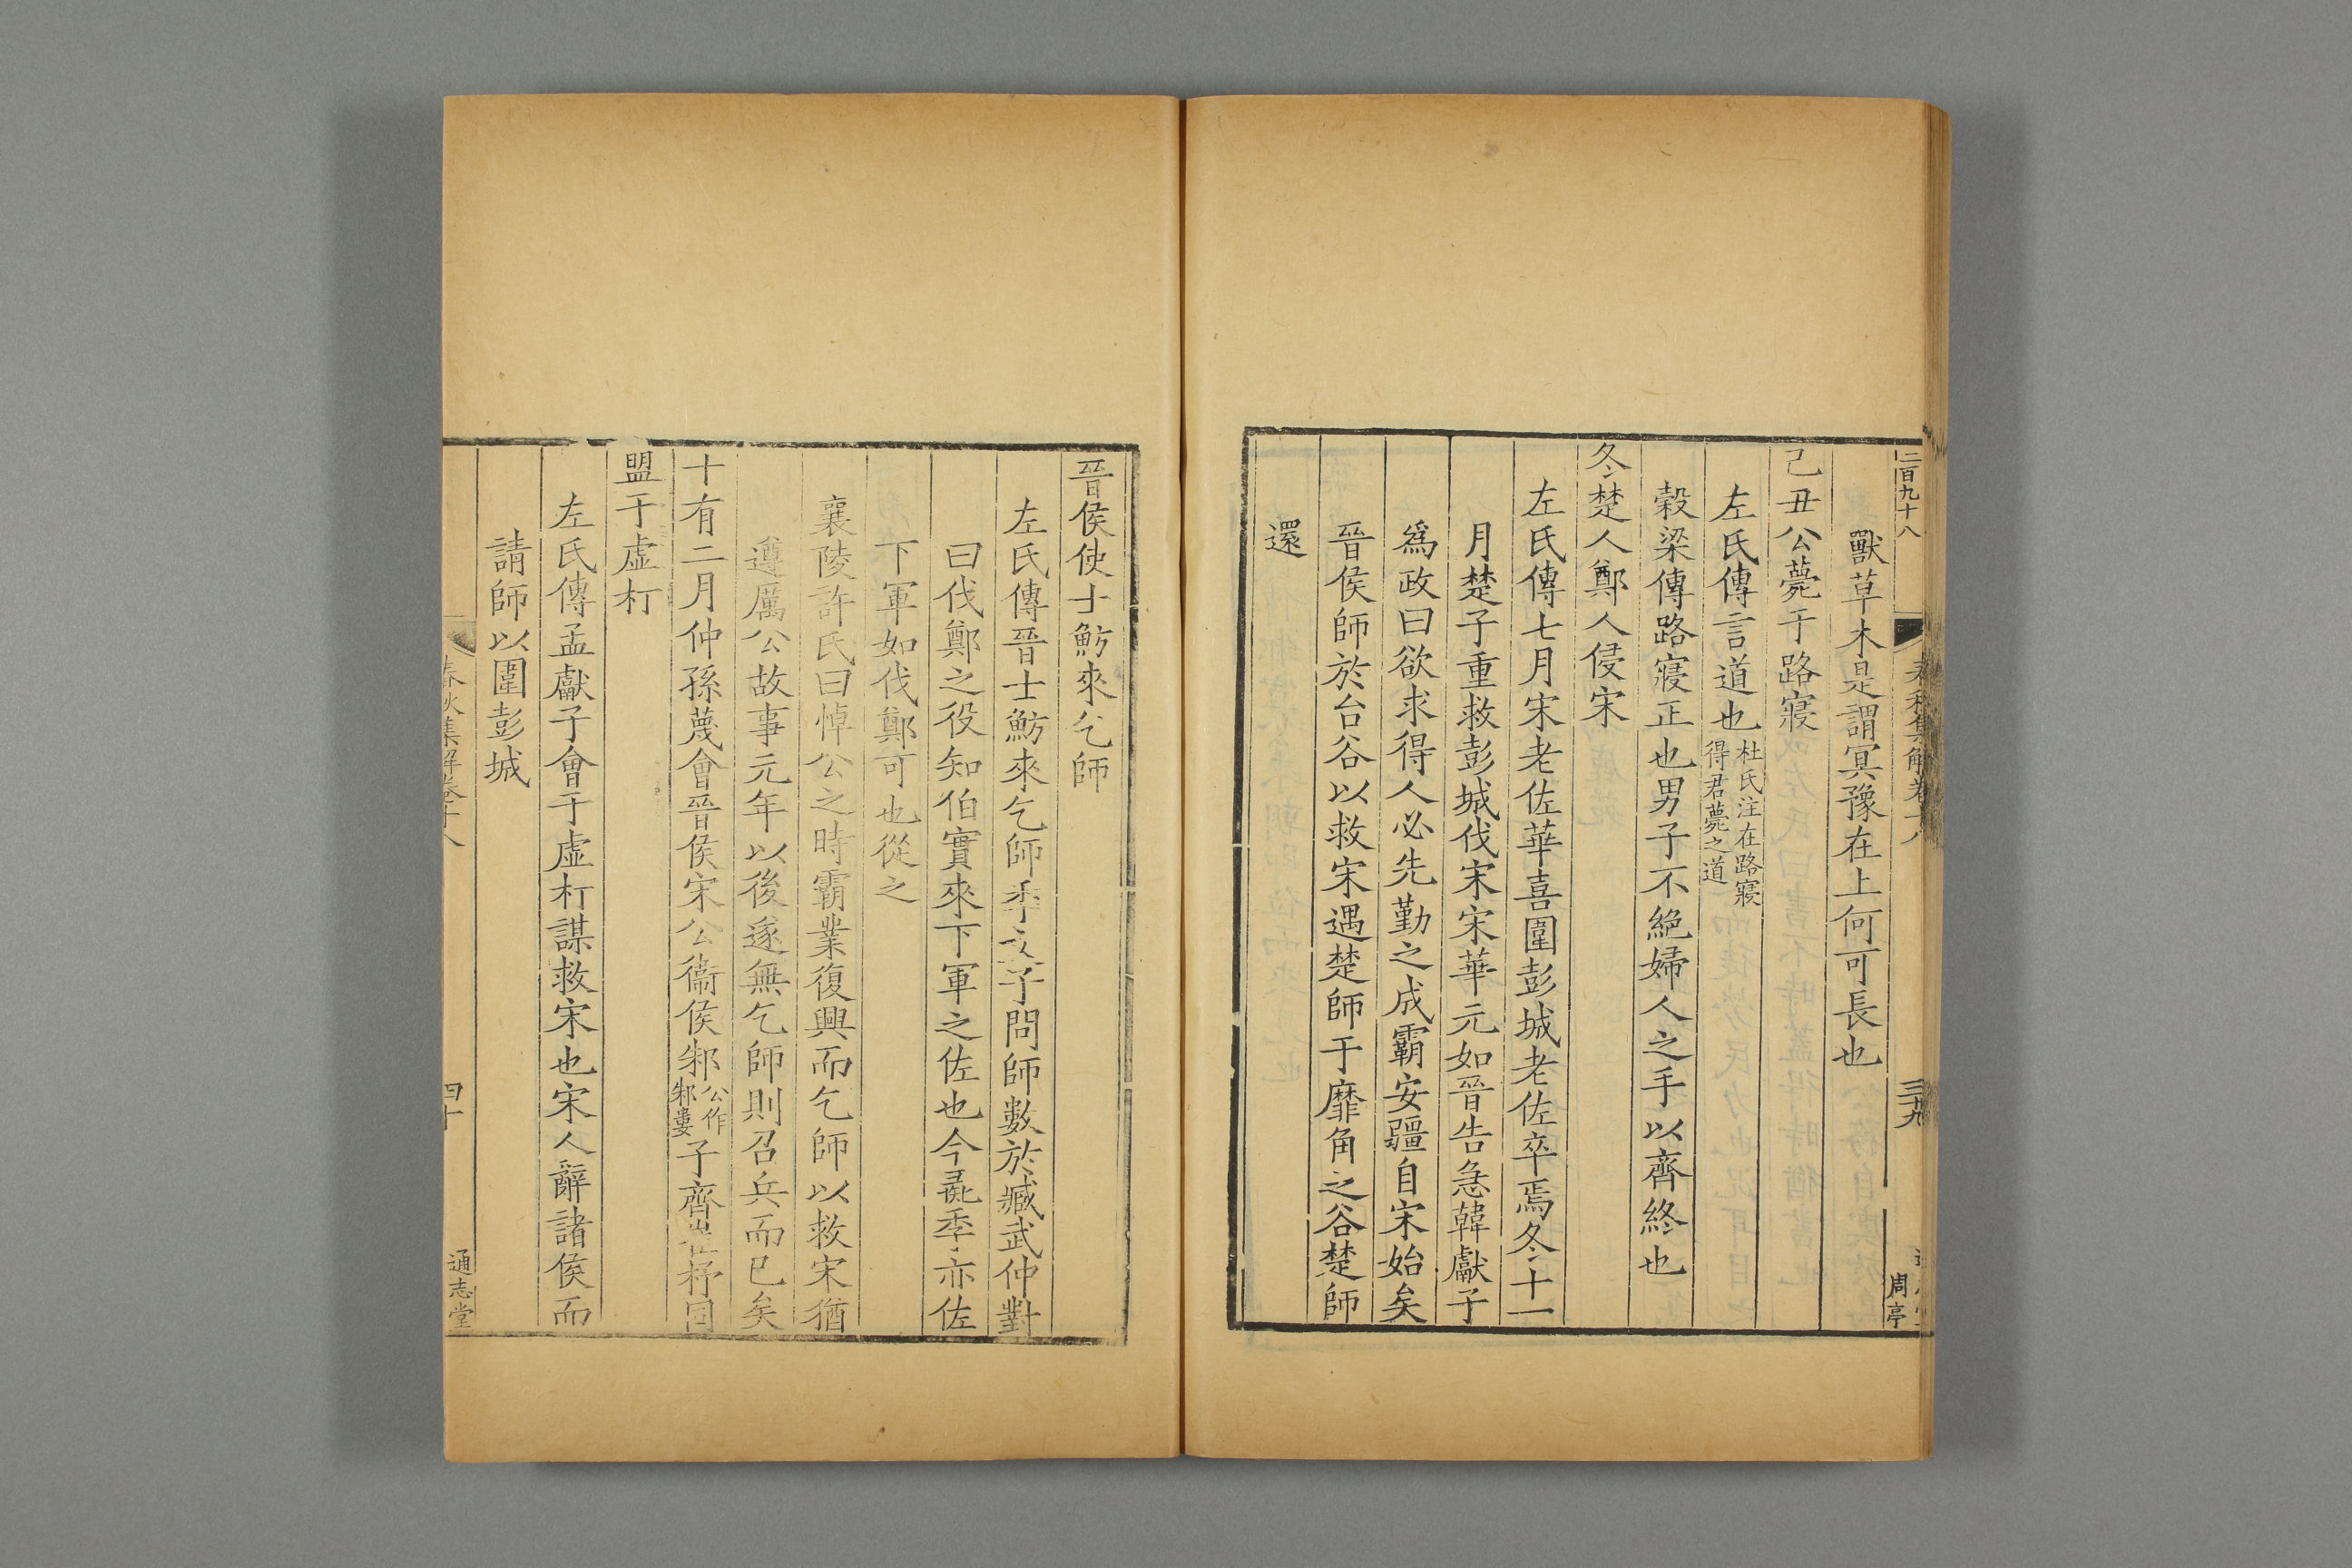 二百九十八
春秋集解卷十八
三十九
周亭
獸草木是謂冥豫在上何可長也
己丑公薨于路寢
左氏傳言道也杜氏注在路寢得君薨之道
穀梁傳路寢正也男子不絶婦人之手以齊終也
冬楚人鄭人侵宋
左氏傳七月宋老佐華喜圍彭城老佐卒焉冬十一
月楚子重救彭城伐宋宋華元如晉告急韓獻子
爲政曰欲求得人必先勤之成霸安疆自宋始矣
晉侯師於台谷以救宋遇楚師于靡角之谷楚師
還
晉侯使士魴來乞師
左氏傳晉士魴來乞師季文子問師數於臧武仲對
曰伐鄭之役知伯實來下軍之佐也今彘季亦佐
下軍如伐鄭可也從之
襄陵許氏曰悼公之時霸業復興而乞師以救宋猶
遵厲公故事元年以後遂無乞師則召兵而已矣
十有二月仲孫蔑會晉侯宋公衞侯邾公作邾婁子齊崔杼同
盟于虛朾
左氏傳孟獻子會于虛朾謀救宋也宋人辭諸侯而
請師以圍彭城
春秋集解卷十八
四十
通志堂